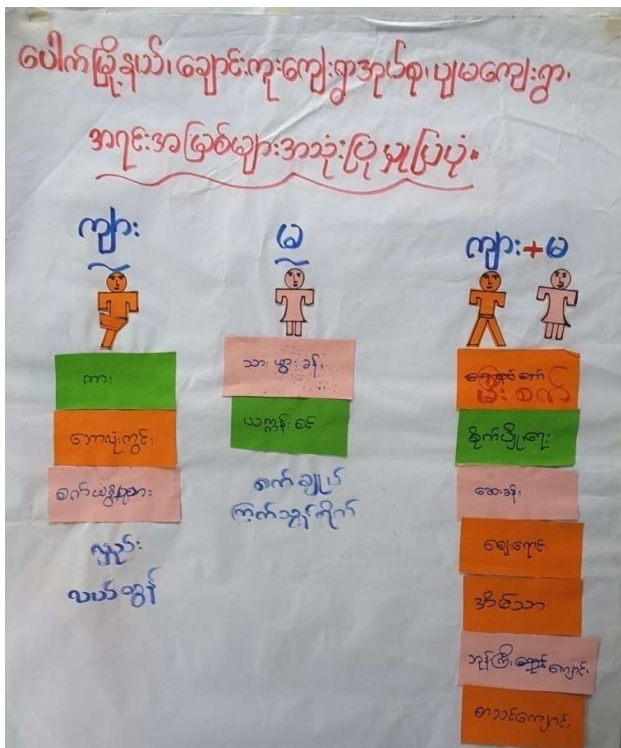 ပေါက်မြို့နယ်၊ ချောင်းကူးကျေးရွာအုပ်စု၊ ပျမကျေးရွာ၊
အရင်းအမြစ်များအသုံးပြုမှုပြပုံ။
ကျား
မ
ကျား+မ
ကား
ဘောလုံးကွင်း
စက်ယန္တရား
လှည်း
လယ်ထွန်
သားဖွားခန်း
ယက္ကန်းစင်
စက်ချုပ်
ကြက်သွန်စိုက်
မီးစက်
စိုက်ပျိုးရေး
ဆေးခန်း
ဈေးရောင်း
အိမ်သာ
ဘုန်းကြီးကျောင်း
စာသင်ကျောင်း